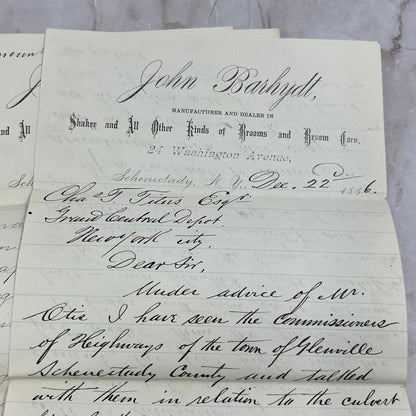 John Barhydt,
MANUFACTURER AND DEALER IN
Shaker and All Other Kinds of Brooms and Broom Corn.
24 Washington Avenue,
Schenectady, N. Y., Dec. 22d 1886.
Chas T. Titus Esqr
Grand Central Depot
New York city.
Dear Sir,
Under advice of Mr.
Otis I have seen the commissioners
of Highways of the town of Glenville
Schenectady County and talked
with them in relation to the culvert
and All